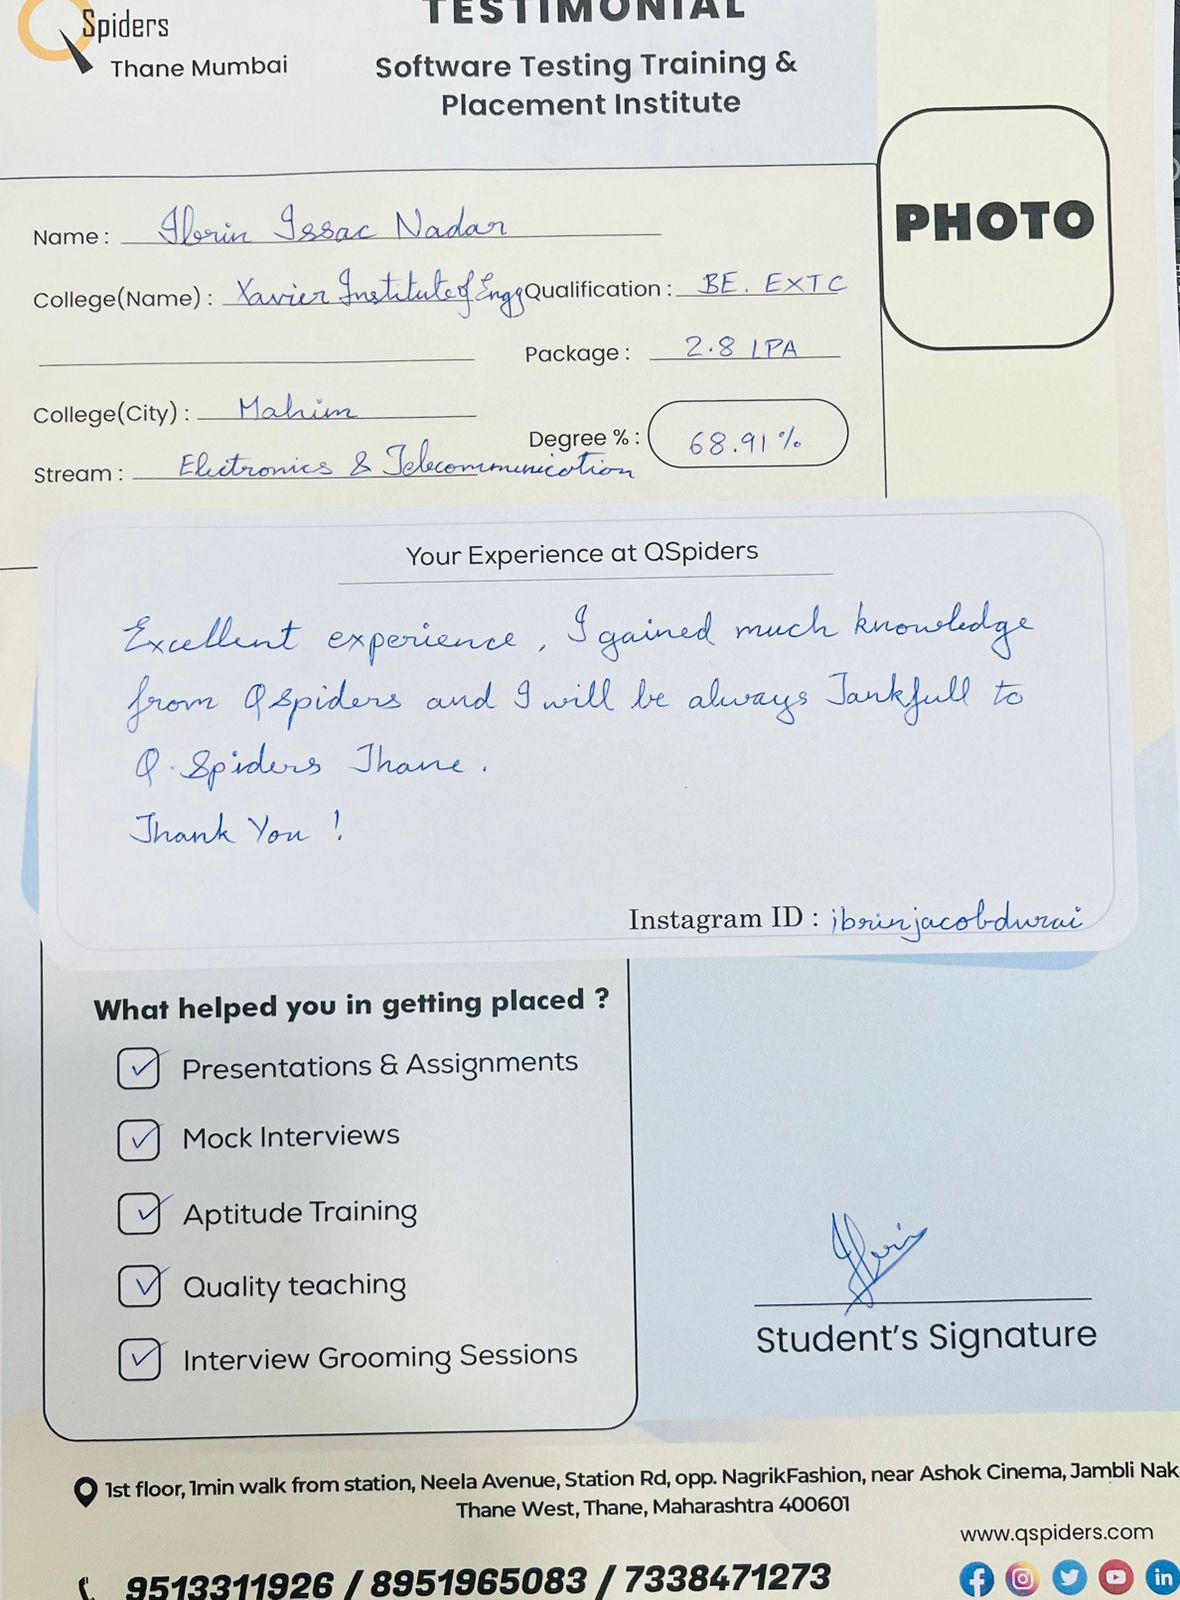 TESTIMONIAL
Spiders
Thane Mumbai
Software Testing Training &
Placement Institute
PHOTO
Name : Ibrin Issac Nadar
College(Name) : Xavier Institute of Engg Qualification : BE. EXTC
Package : 2.8 LPA
College(City) : Mahim
Degree % : 68.91 %
Stream : Electronics & Telecommunication
Your Experience at QSpiders
Excellent experience, I gained much knowledge
from QSpiders and I will be always Tankfull to
Q. Spiders Thane.
Thank You !
Instagram ID : ibrinjacobdurai
What helped you in getting placed ?
Presentations & Assignments
Mock Interviews
Aptitude Training
Quality teaching
Interview Grooming Sessions
Student's Signature
1st floor, 1min walk from station, Neela Avenue, Station Rd, opp. NagrikFashion, near Ashok Cinema, Jambli Nak
Thane West, Thane, Maharashtra 400601
www.qspiders.com
9513311926 / 8951965083 / 7338471273